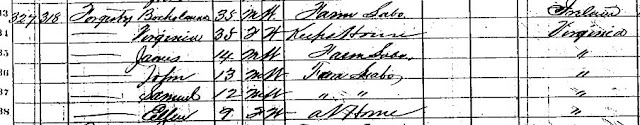 33 327 318 35 M W Farm Labo. Ireland
34 Virginia 35 F W Keeps House Virginia
35 —— James 14 M W Farm Labo. "
36 —— John 13 M W Farm Labo, "
—— Samuel 12 M W " " "
38 —— Ellen 9 F W at Home "